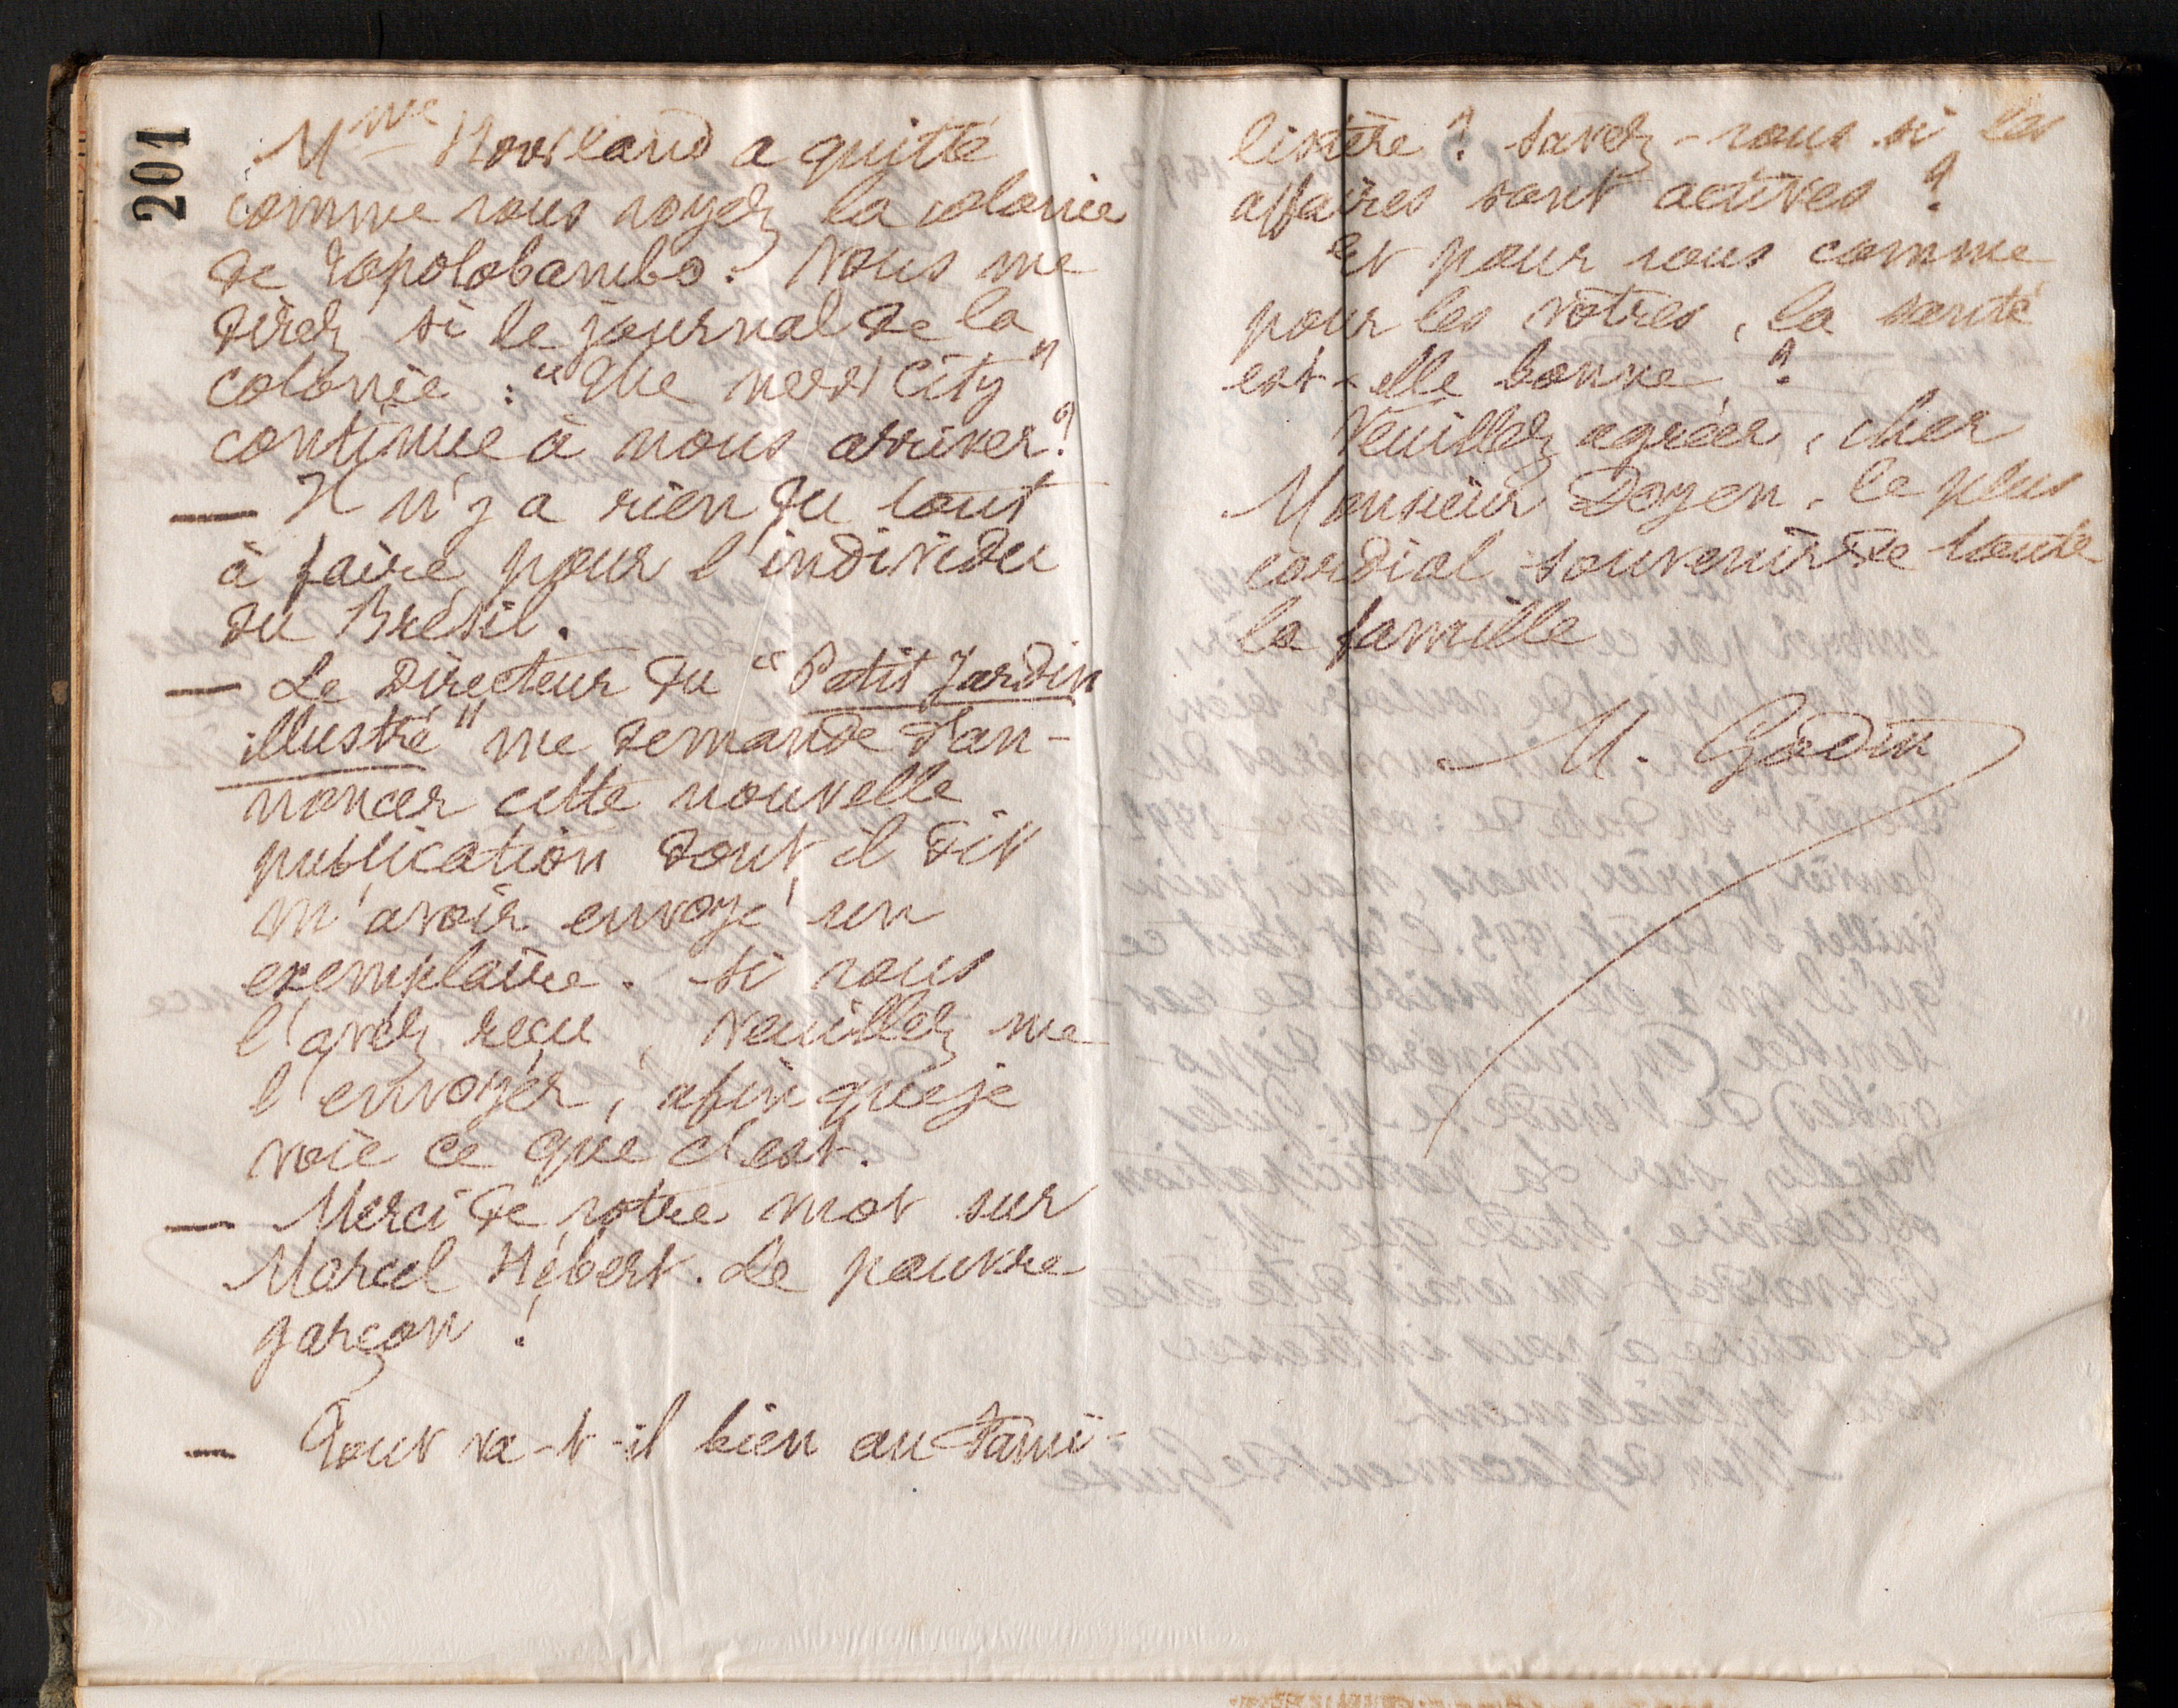 201
Mme Howland a quitté
comme vous voyez la colonie
de Topolobambo. Vous me
direz si le journal de la
colonie : "The new City"
continue à nous arriver ?
— Il n'y a rien du tout
à faire pour l'individu
du Brésil.
— Le Directeur du "Petit Jardin
illustré" me demande d'an-
noncer cette nouvelle
publication dont il dit
m'avoir envoyé un
exemplaire. Si vous
l'avez reçu, veuillez me
l'envoyer, afin que je
voie ce que c'est.
— Merci de votre mot sur
Marcel Hébert. Le pauvre
garçon !
— Tout va-t-il bien au Fami-
listère ? Savez-vous si les
affaires sont actives ?
Et pour vous comme
pour les vôtres, la santé
est-elle bonne ?
Veuillez agréer, cher
Monsieur Doyen, le plus
cordial souvenir de toute
la famille
M. Godin